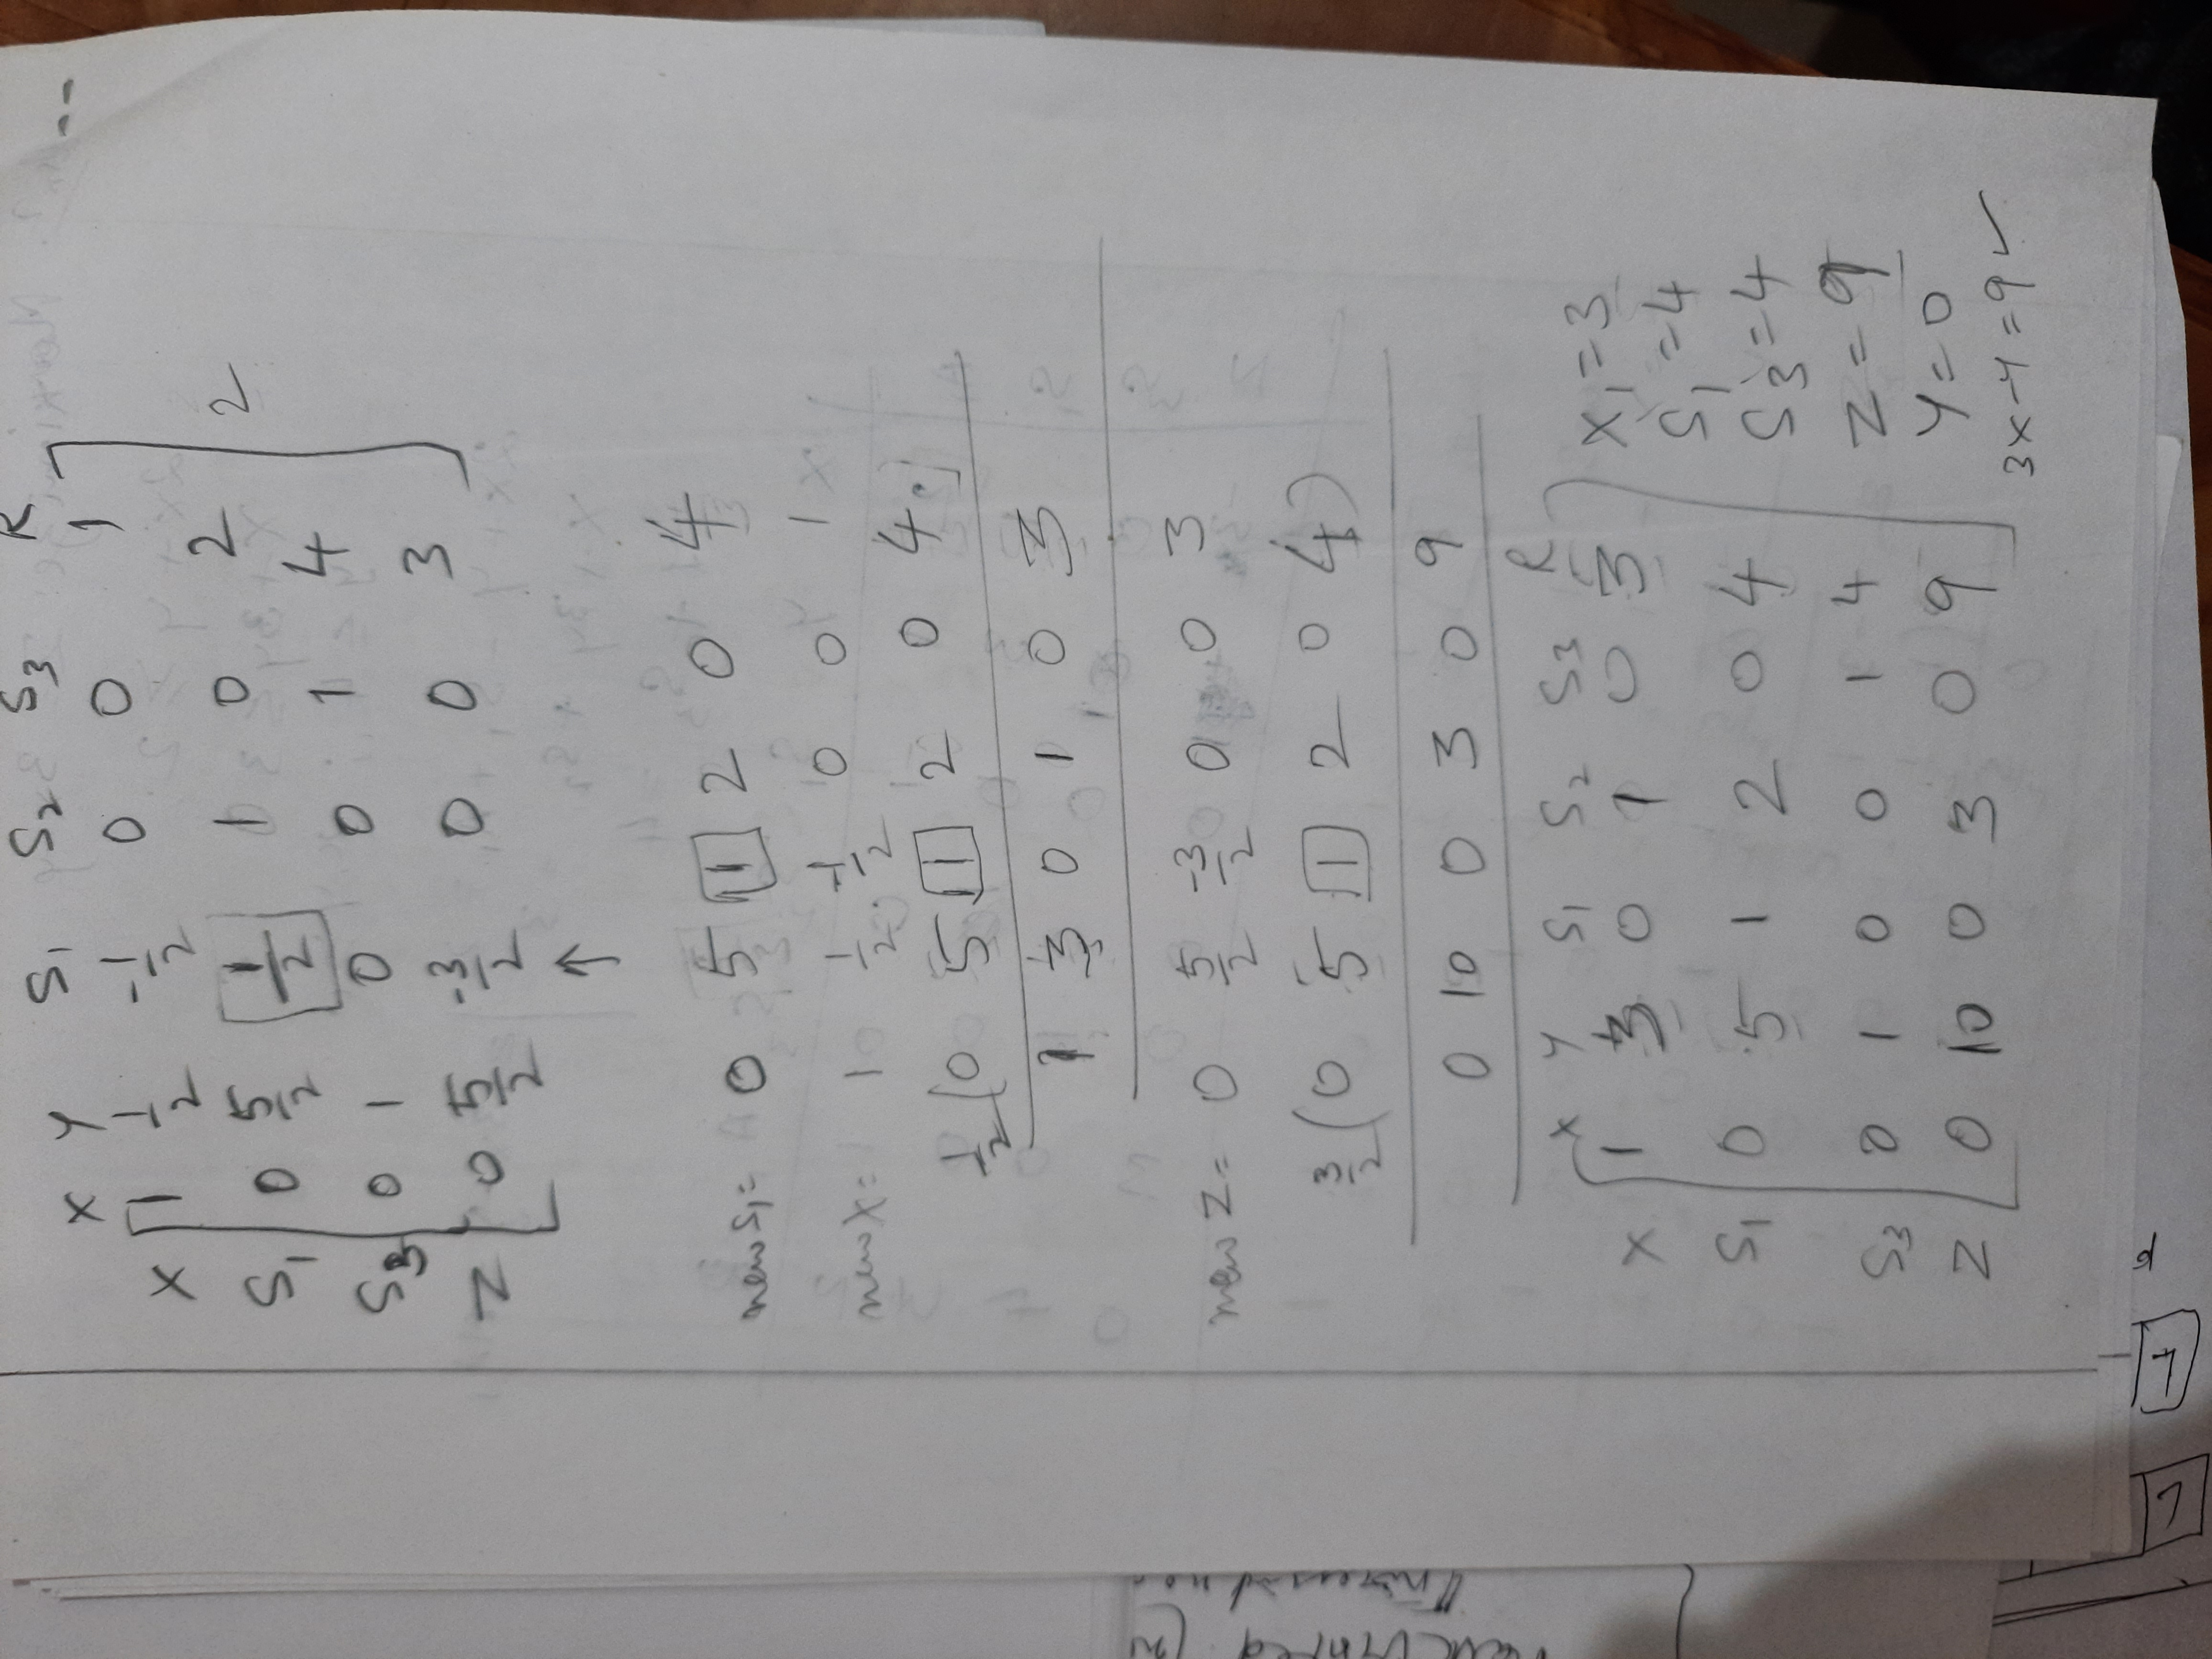 X Y S₁ S₂ S₃ R
X 1 1/2 -1/2 0 0 1
S₁ 0 5/2 1/2 1 0 2 2
S₃ 0 1 0 0 1 4
Z 0 5/2 -3/2 0 0 3
↑
new S₁ = 0 5 1 2 0 4
new X = 1 1/2 -1/2 0 0 1
1/2 (0 5 1 2 0 4)
1 3 0 1 0 3
new Z = 0 5/2 -3/2 0 0 3
3/2 (0 5 1 2 0 4)
0 10 0 3 0 9
X Y S₁ S₂ S₃ R
X 1 3 0 1 0 3
S₁ 0 5 1 2 0 4
S₃ 0 1 0 0 1 4
Z 0 10 0 3 0 9
X₁ = 3
S₁ = 4
S₃ = 4
Z = 9
Y = 0
3X-Y = 9 ✓